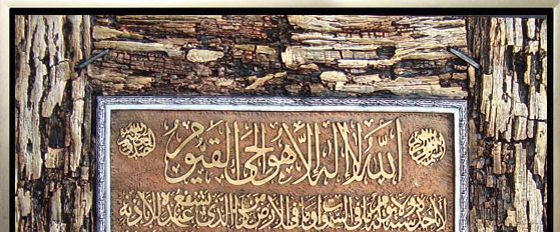 الله لا إله إلا هو الحي القيوم
لا تأخذه سنة ولا نوم له ما في السموات وما في الأرض من ذا الذي يشفع عنده إلا بإذنه